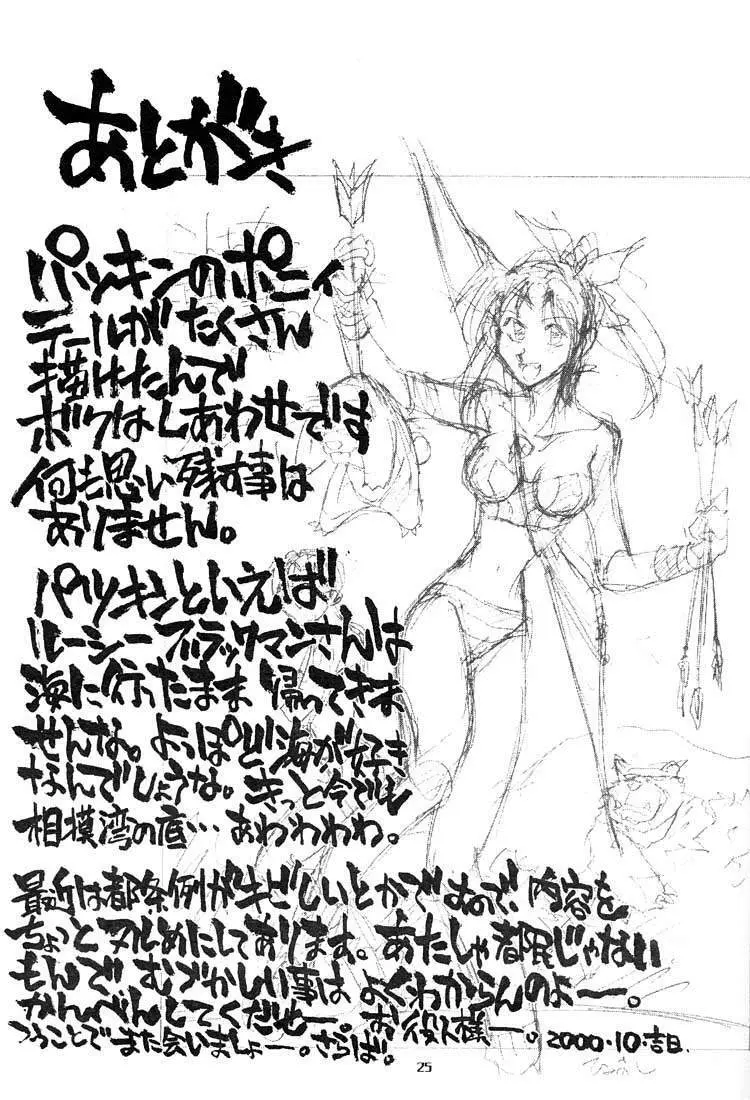 あとがき
パッキンのポニィ
テールがたくさん
描けたんで
ボクはしあわせです
何も思い残す事は
ありません。
パツキンといえば
ルーシーブラックマンさんは
海に行ったまま 帰ってきま
せんな。よっぽど海が好き
なんでしょうな。きっと今でも
相模湾の底… あわわわわ。
最近は都条例がキビしいとかですので、内容を
ちょっとヌルめにしてあります。あたしゃ都民じゃない
もんで むづかしい事は よくわからんのよー。
かんべんしてくだせー。お役人様ー。
つうことで また会いましょー。さらば。
2000.10.吉日
25